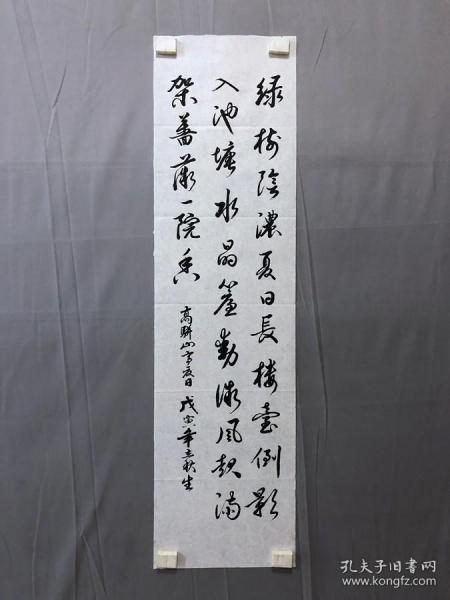 绿树阴浓夏日長楼台倒影
入池塘水晶簾動微風起满
架薔薇一院香
高駢山亭夏日 戊寅年立秋生
孔夫子旧书网
www.kongfz.com